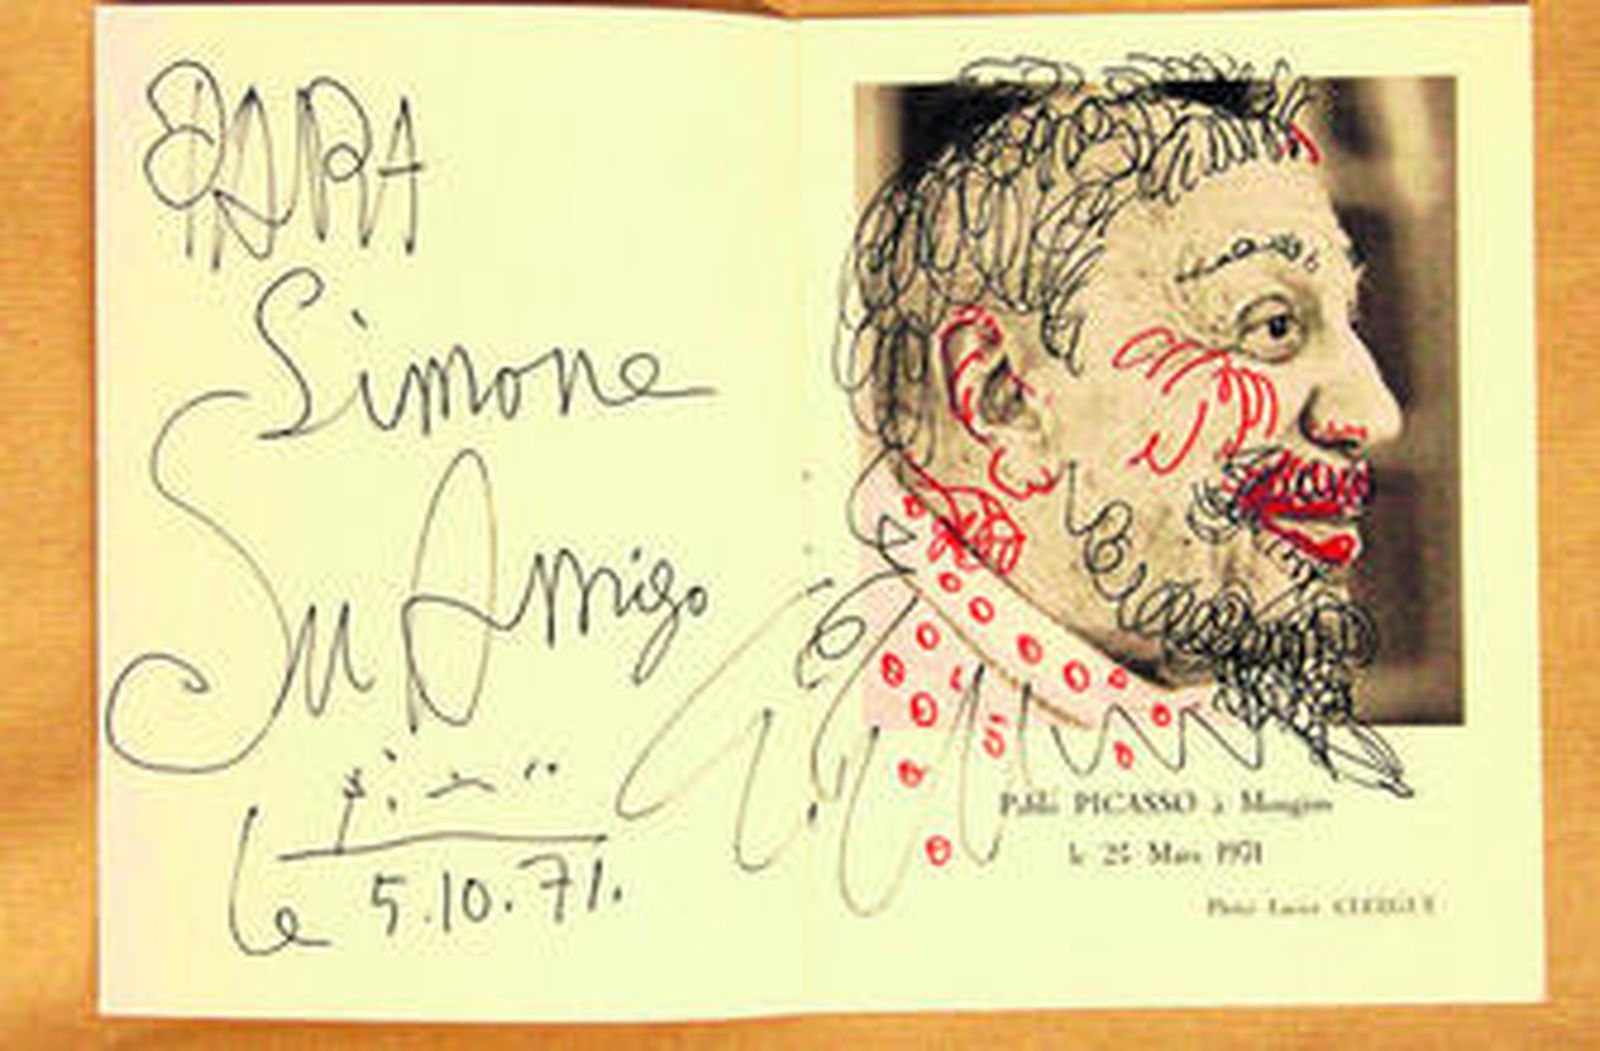 PARA
Simone
Su Amigo
Le 5.10.71.
Pablo PICASSO à Mougins
le 25 Mars 1971
Photo Lucien CLERGUE